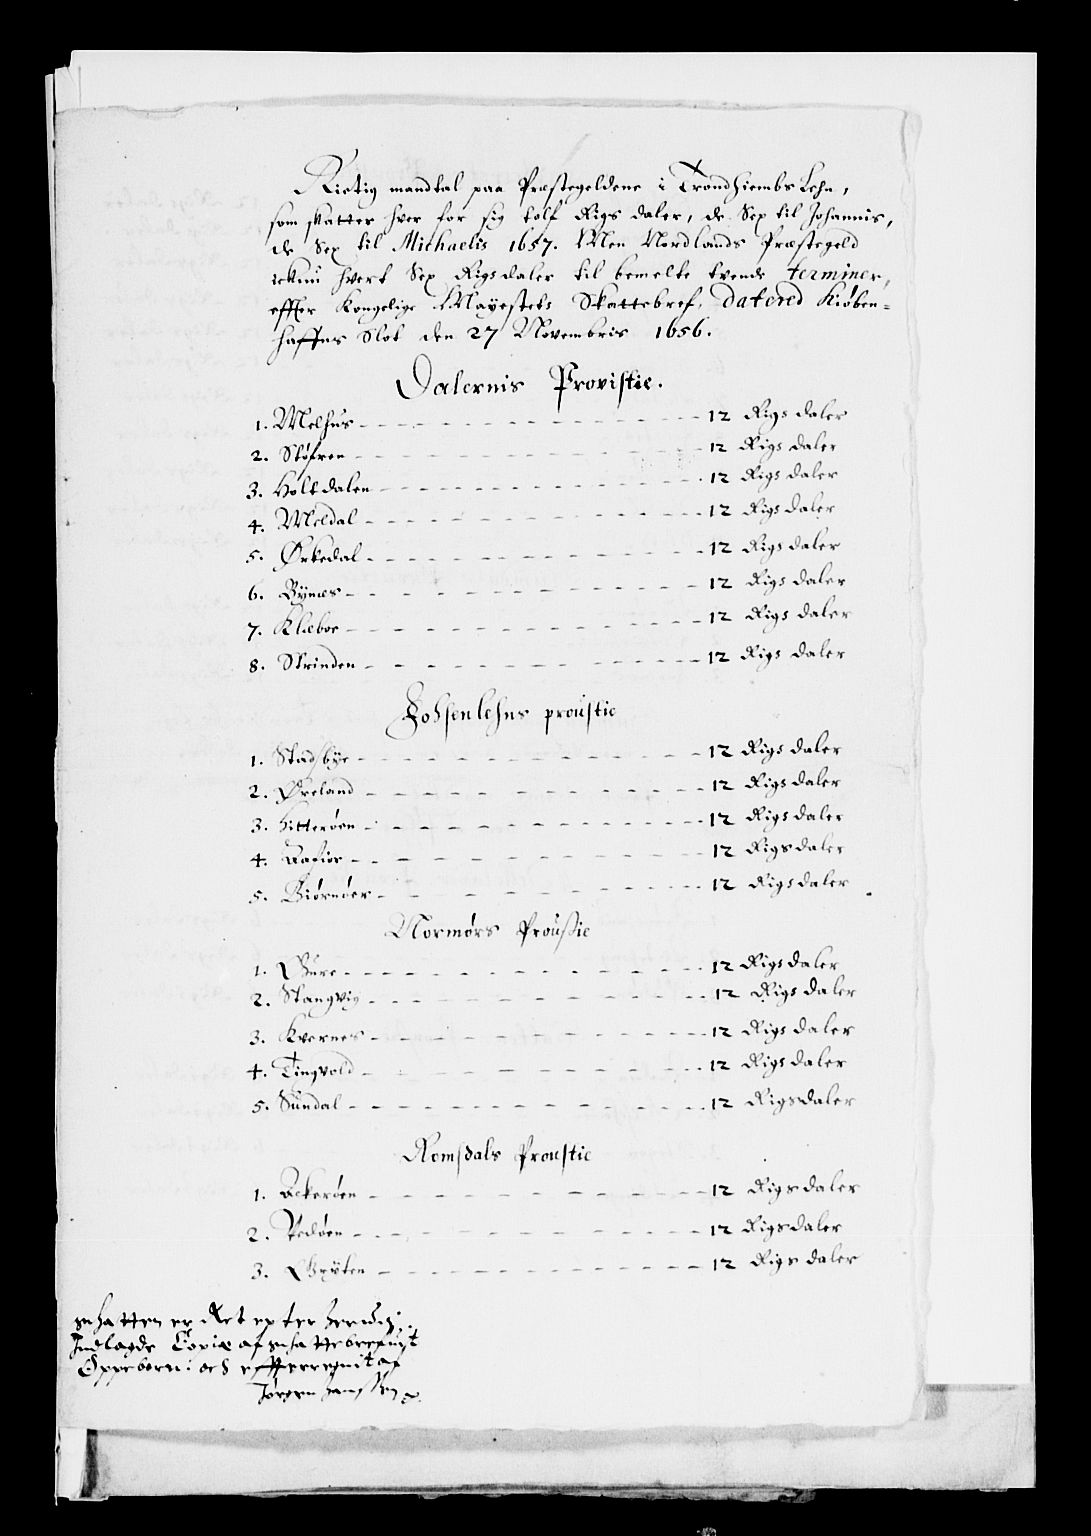 Rictig mandtal paa Præstegeldene i Trondhiembs Lehn,
som skatter hver for sig tolf Rigs daler, de Sex til Johannis,
de Sex til Michaelis 1657. Men Nordlands Præstegeld
ickun hvert Sex Rigsdaler til bemelte tvende terminer,
effter Kongelige Mayestets Skattebref, datered Kiøben-
haffns Slot den 27 Novembris 1656.
Dalernis Provistie.
1. Melhus 12 Rigs daler
2. Støfren 12 Rigs daler
3. Holtdalen 12 Rigs daler
4. Meldal 12 Rigs daler
5. Ørkedal 12 Rigs daler
6. Bynæs 12 Rigs daler
7. Klæboe 12 Rigs daler
8. Strinden 12 Rigs daler
Fohsenlehns proustie
1. Stadsbye 12 Rigs daler
2. Øreland 12 Rigs daler
3. Hitterøen 12 Rigs daler
4. Aafior 12 Rigsdaler
5. Biørnøer 12 Rigsdaler
Normørs Proustie
1. Øure 12 Rigsdaler
2. Stangvig 12 Rigs daler
3. Kvernes 12 Rigs daler
4. Tingvold 12 Rigs daler
5. Sundal 12 Rigsdaler
Romsdals Proustie
1. Ackerøen 12 Rigsdaler
2. Vedøen 12 Rigsdaler
3. Gryten 12 Rigs daler
schatten er Ret epter
Indlagde Copiæ af schattebrefuit
Oppeboren: och effterregnit af
Jørgen Janssen